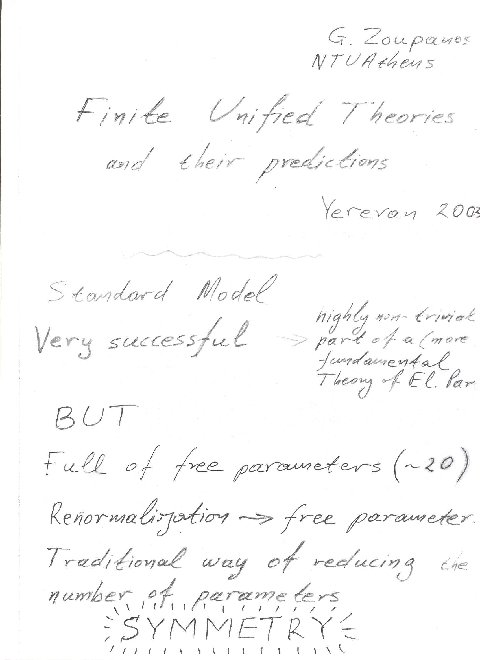 G. Zoupanos
NTUAthens
Finite Unified Theories
and their predictions
Yerevan 2003
Standard Model
Very successful → highly non-trivial
part of a (more
fundamental
Theory of El. Par
BUT
Full of free parameters (~20)
Renormalization → free parameter
Traditional way of reducing the
number of parameters
SYMMETRY